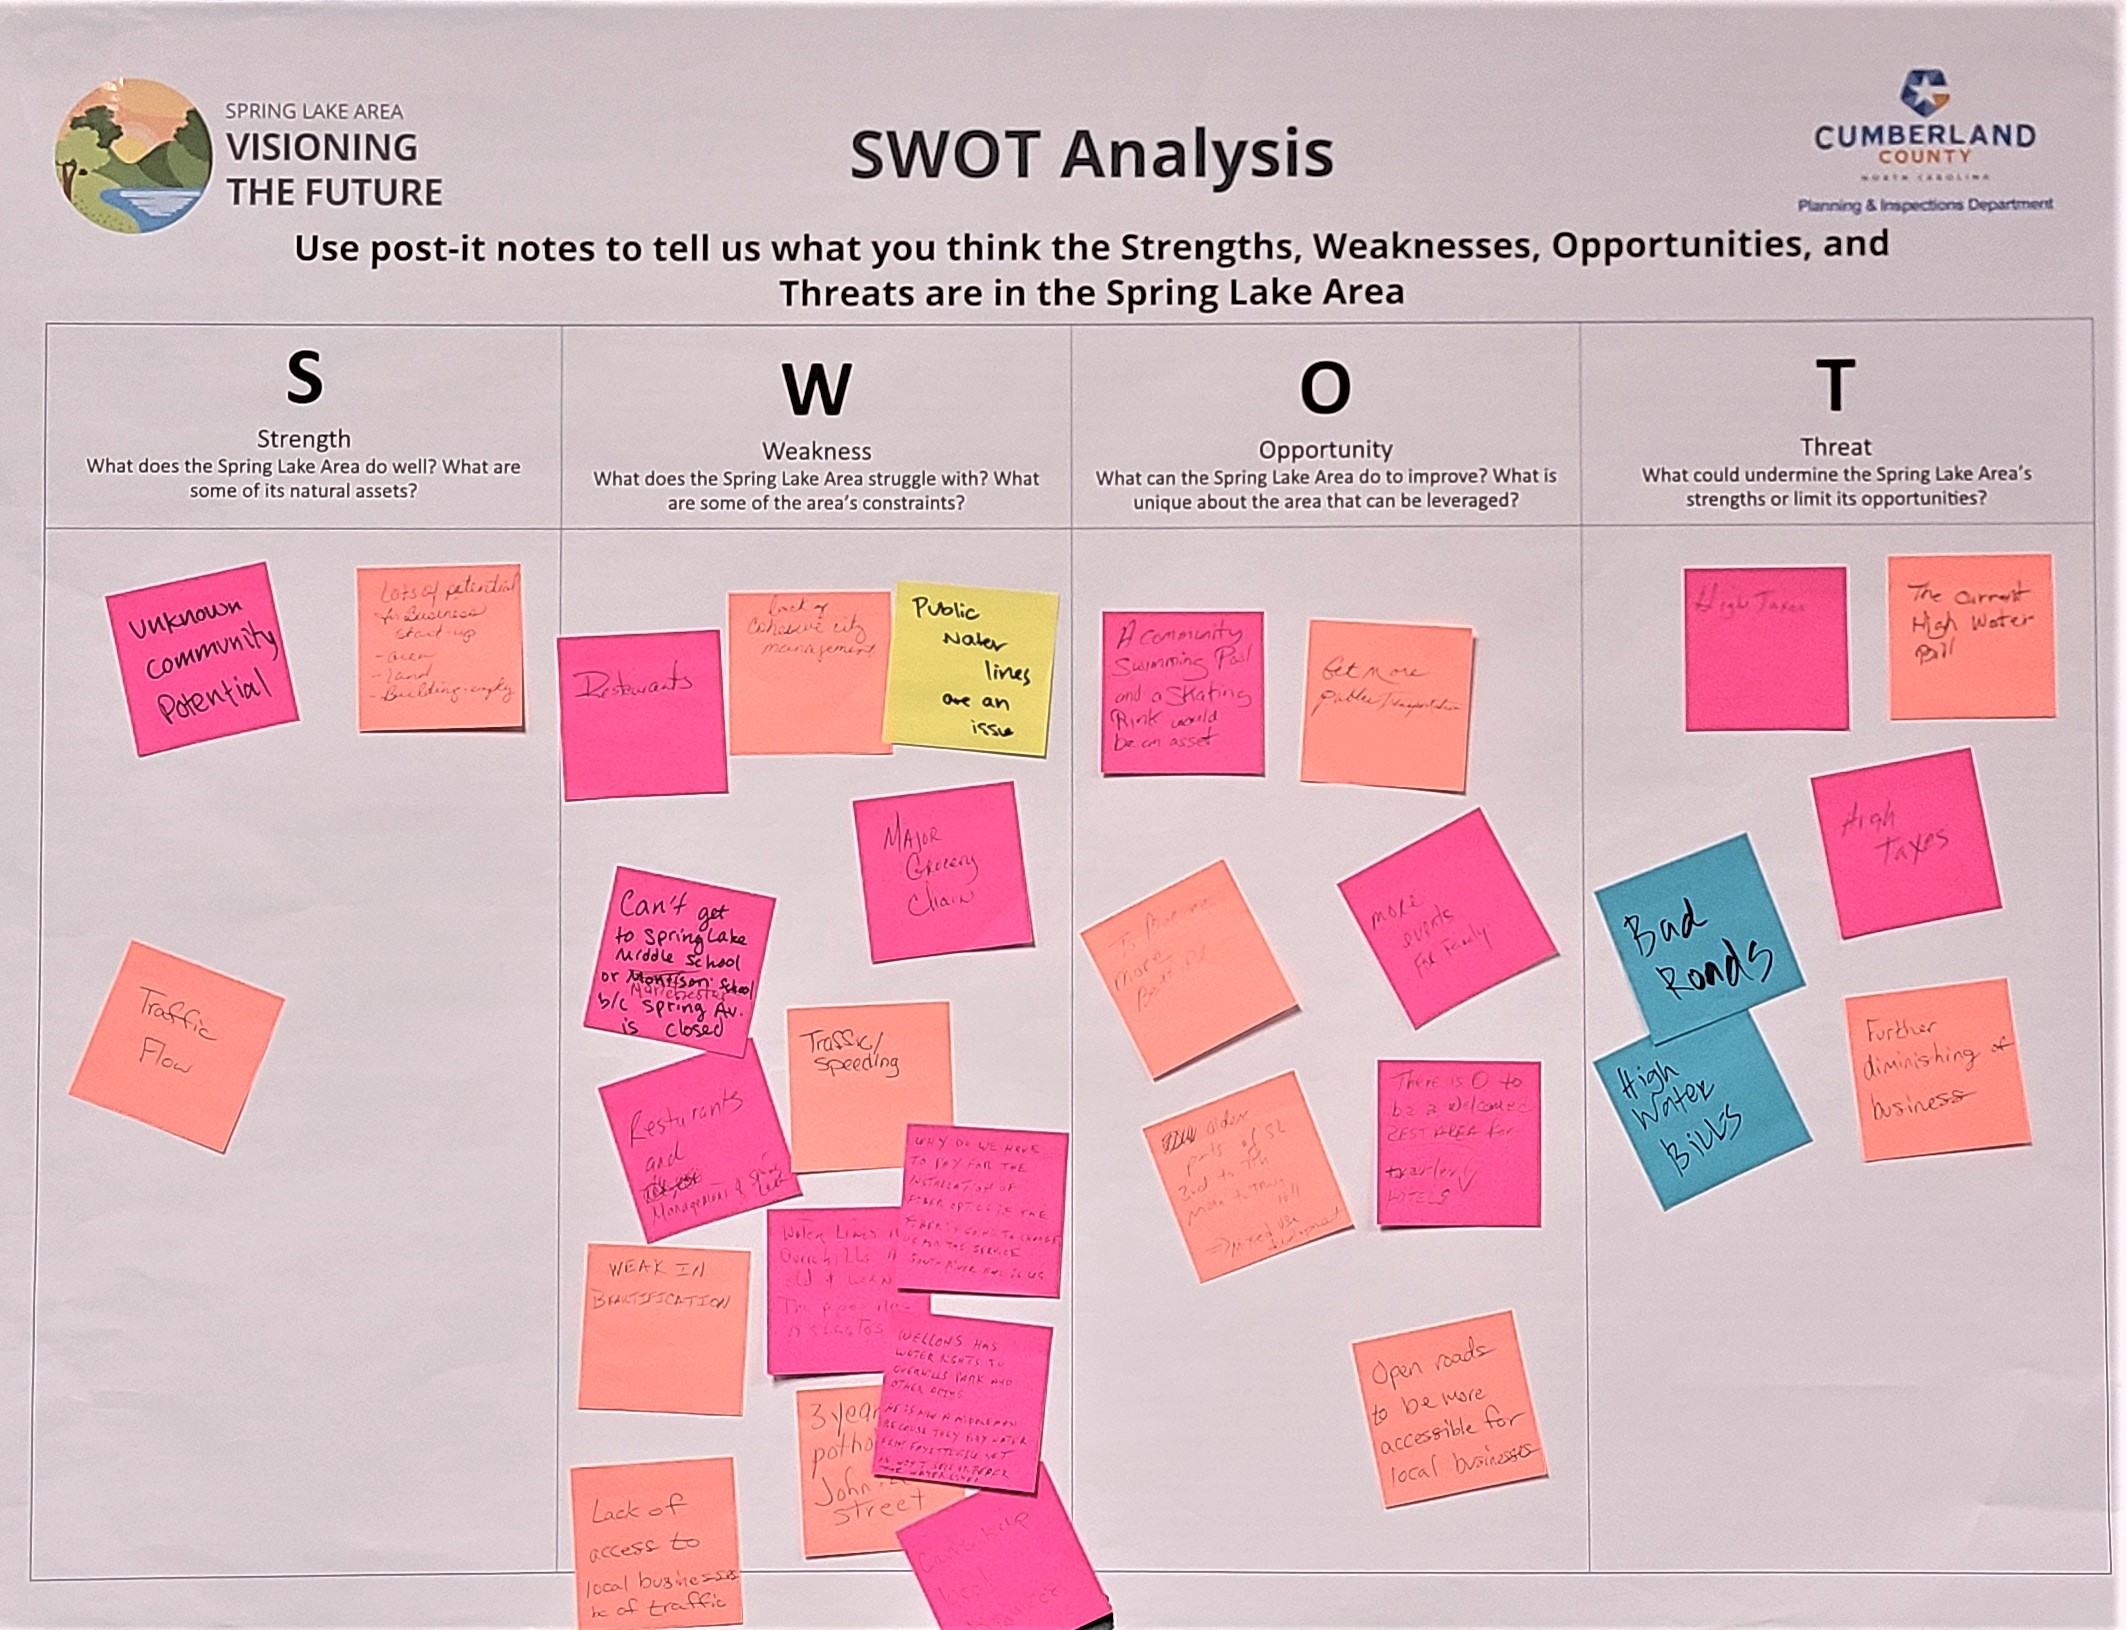 SPRING LAKE AREA
VISIONING
THE FUTURE
SWOT Analysis
CUMBERLAND
COUNTY
NORTH CAROLINA
Planning & Inspections Department
Use post-it notes to tell us what you think the Strengths, Weaknesses, Opportunities, and
Threats are in the Spring Lake Area
S
Strength
What does the Spring Lake Area do well? What are
some of its natural assets?
Unknown
Community
Potential
Lots of potential
for Business
start-up
- area
- land
- Building-empty
Traffic
Flow
W
Weakness
What does the Spring Lake Area struggle with? What
are some of the area's constraints?
Restuants
Lack of
Cohesive city
management
Public
Water
lines
are an
issue
Major
Grocery
Chain
Can't get
to Spring Lake
Middle School
or School
Manchester
b/c Spring Av.
is closed
Traffic/
speeding
Resturants
and
Management of Spring
Lake
WHY DO WE HAVE
TO PAY FOR THE
INSTALLATION OF
FIBER OPTICS IF THE
FIBER IS GOING TO CHARGE
US FOR THE SERVICE
SOUTH RIVER
WEAK IN
BEAUTIFICATION
Water Lines
Overhills
old & worn
The pipes
WELLONS HAS
WATER RIGHTS TO
OVERHILLS PARK AND
OTHER AREAS
HE IS NOW A MIDDLEMAN
BECAUSE THEY BUY WATER
FROM FAYETTEVILLE YET
3 year
potho
John
street
Lack of
access to
local businesses
bc of traffic
help
local
O
Opportunity
What can the Spring Lake Area do to improve? What is
unique about the area that can be leveraged?
A community
Swimming Pool
and a Skating
Rink would
be an asset
Get more
public Transportation
more
more
events
For Family
older
parts of SL
2nd to 7th
Main to
=> mixed use
development
There is O to
be a welcomed
REST AREA for
travlers
HOTELS
Open roads
to be more
accessible for
local businesses
T
Threat
What could undermine the Spring Lake Area's
strengths or limit its opportunities?
High Taxes
The Current
High Water
Bill
High
Taxes
Bad
Roads
High
Water
Bills
Further
diminishing of
business